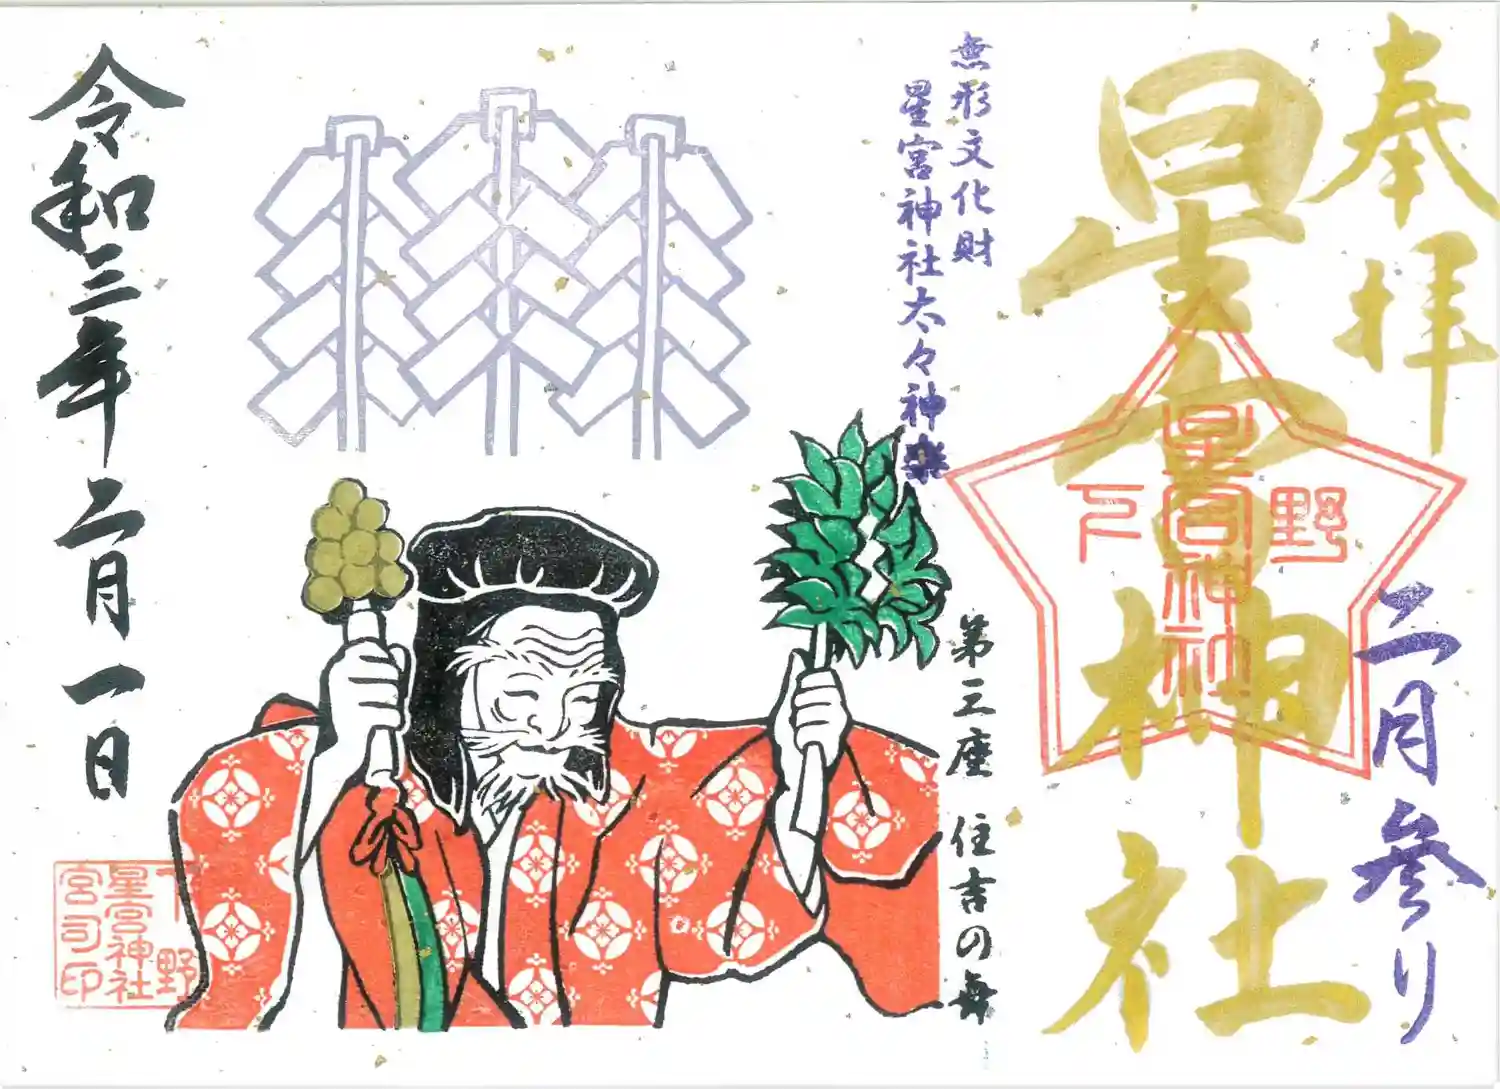 奉拝
星宮神社
下野
星宮神社
二月参り
無形文化財
星宮神社太々神楽
第三座 住吉の舞
令和三年二月一日
下野
星宮神社
宮司印